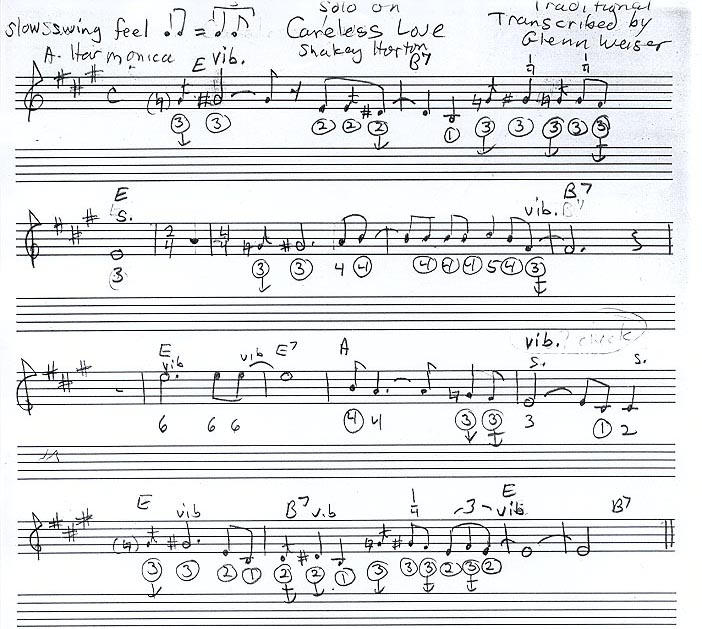 Solo on Traditional
slowsswing feel ♩♪ = ♫ Careless Love Transcribed by
A. Harmonica Shakey Horton Glenn Weiser
E vib. B7
(♮) # # ♮ # ♮
3 3 2 2 2 1 3 3 3 3 3
E B7
s. vib. B7
2/4 4/4
3 3 3 4 4 4 4 4 5 4 3
E E7 A vib. ? check
vib vib s. s.
6 6 6 4 4 3 3 3 1 2
E vib B7 vib 1/4 3 E vib B7
3 3 2 1 2 2 1 3 3 3 2 3 2